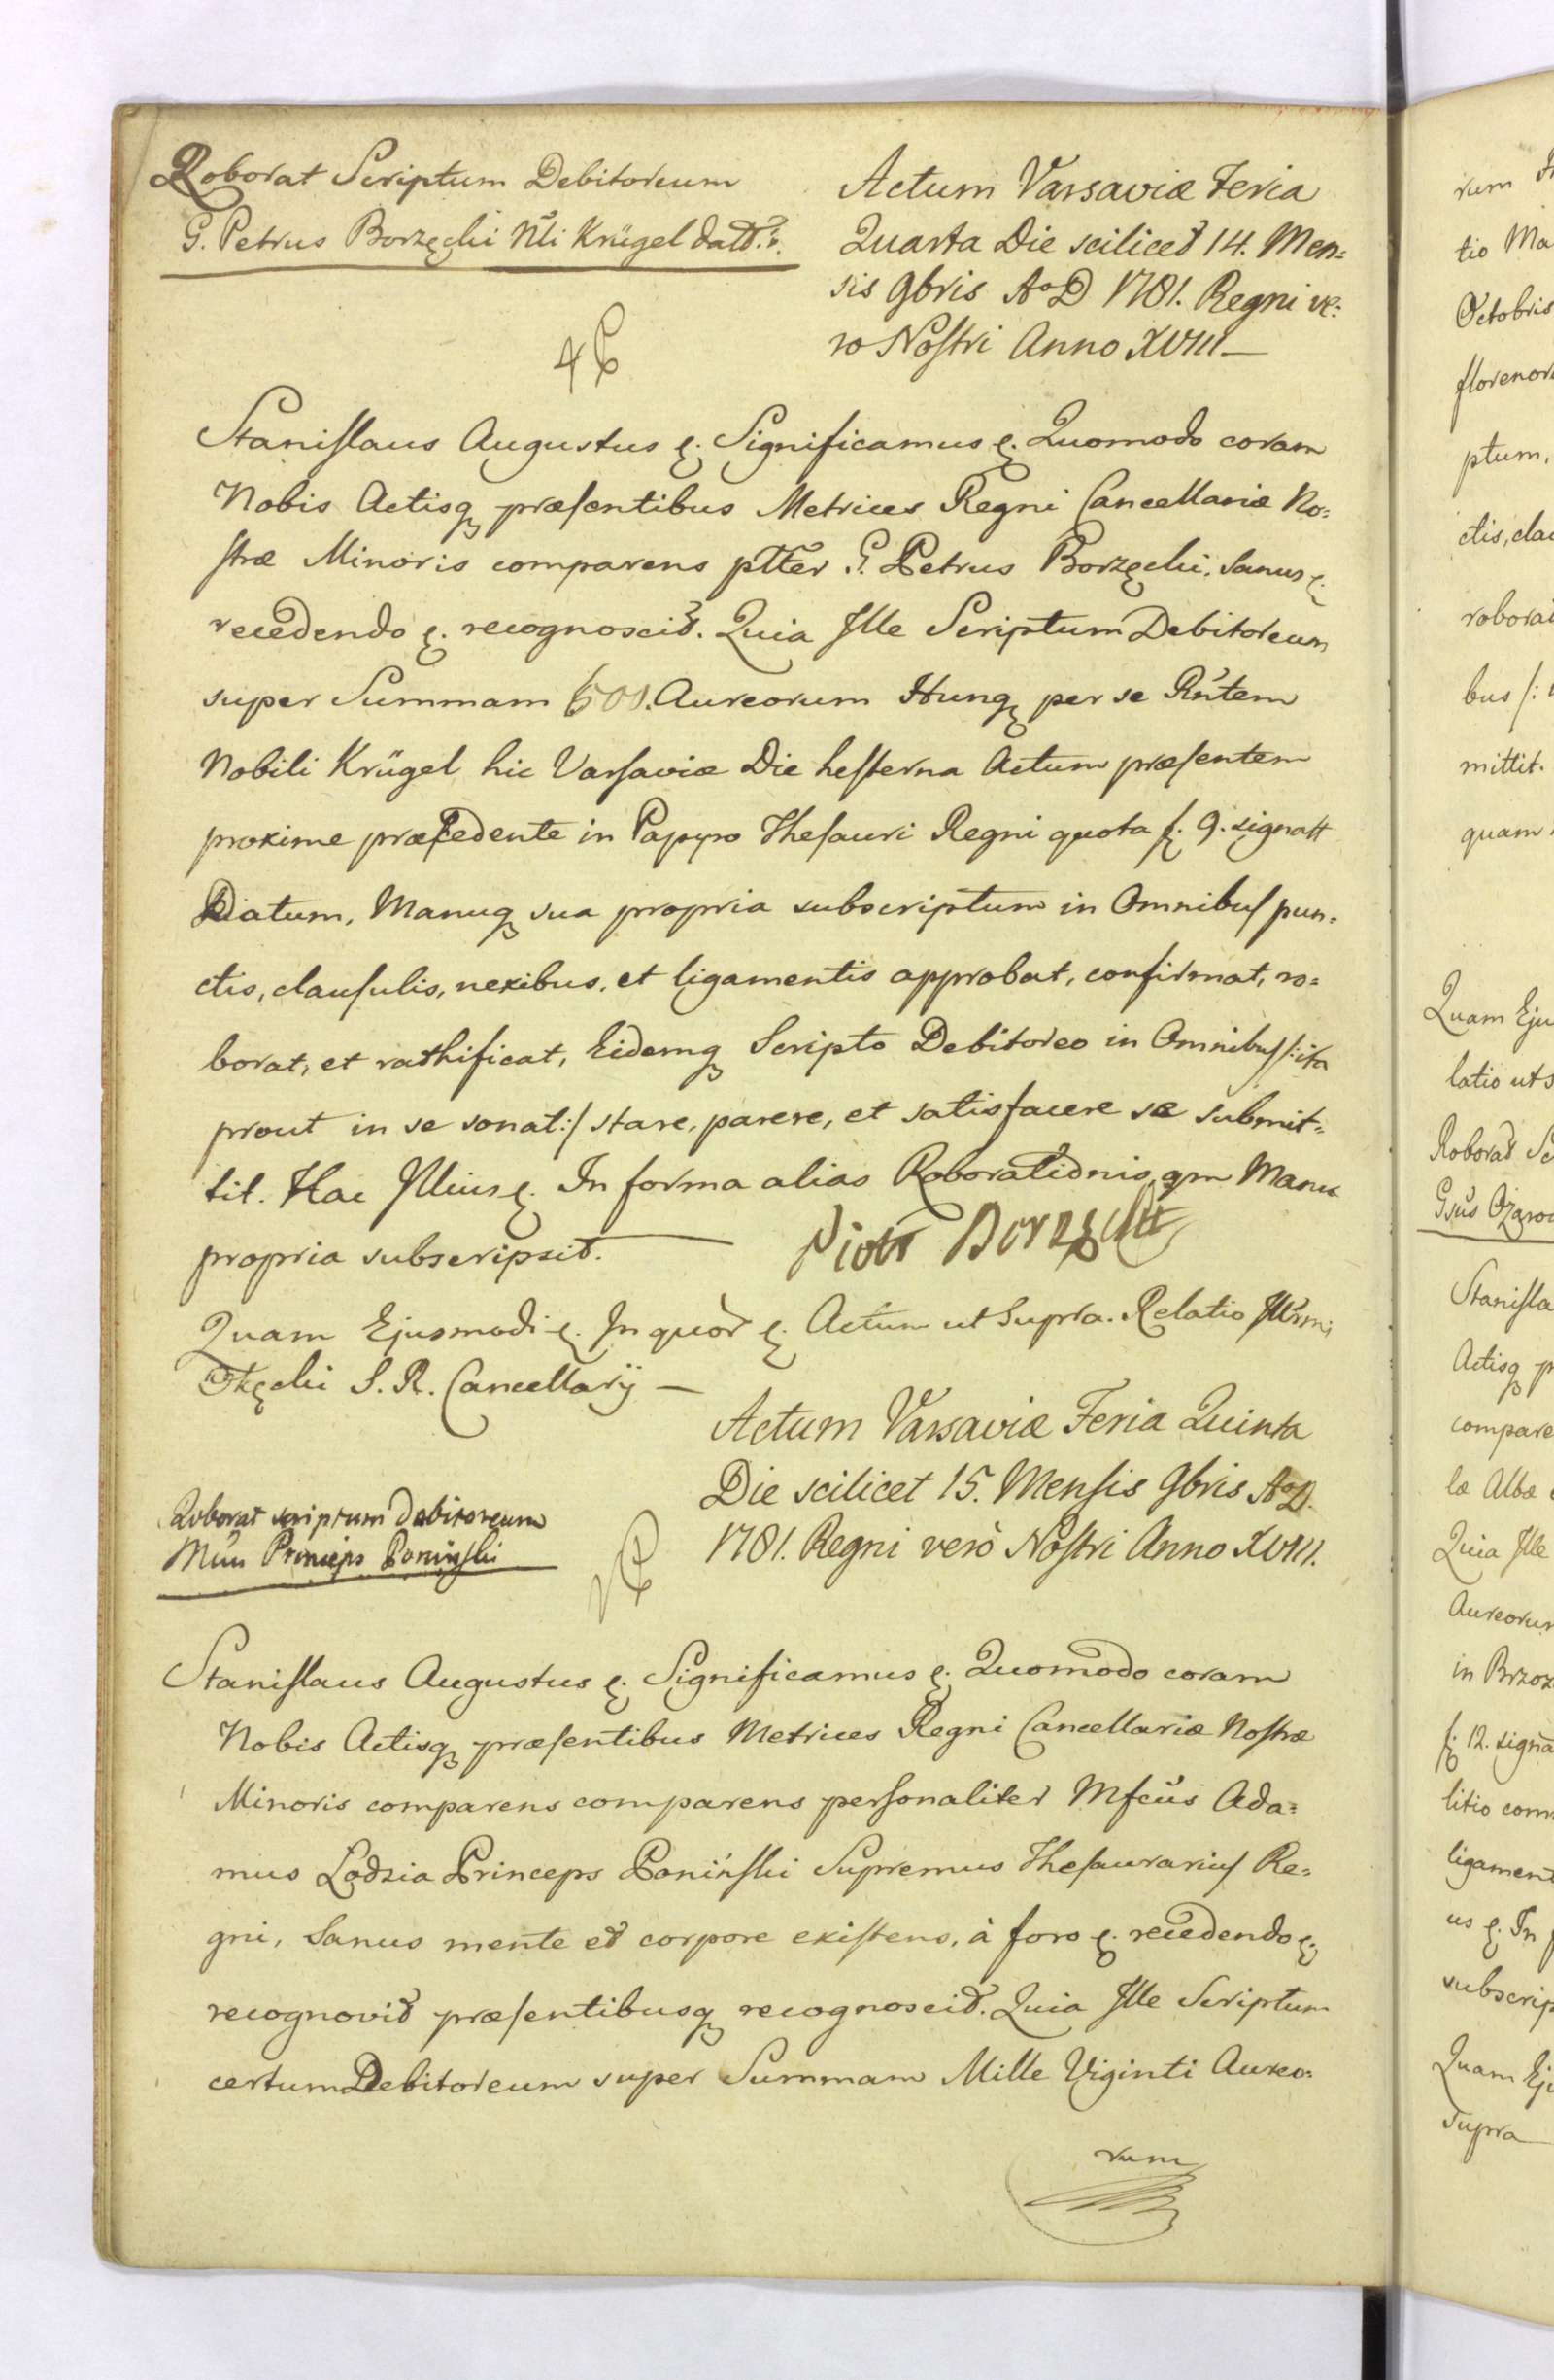 Roborat Scriptum Debitoreum
G. Petrus Borzęcki Nli Krügel datt.
Actum Varsaviæ Feria
Quarta Die scilicet 14. Men=
sis 9bris AoD 1781. Regni ve=
ro Nostri Anno XVIII—
Stanislaus Augustus &. Significamus &. Quomodo coram
Nobis Actisq præsentibus Metrices Regni Cancellariæ No=
stræ Minoris comparens ptter G. Petrus Borzęcki. Sanus &.
recedendo &. recognoscit. Quia Ille Scriptum Debitoreum
super Summam 600. Aureorum Hung per se Rntem
Nobili Krügel hic Varsaviæ Die hesterna Actum præsentem
proxime præcedente in Papyro Thesauri Regni quota f. 9. signatt
Datum, Manuq sua propria subscriptum in Omnibus pun=
ctis, clausulis, nexibus, et ligamentis approbat, confirmat, ro=
borat, et rathificat, Eidemq Scripto Debitoreo in Omnibus /:ita
prout in se sonat:/ stare, parere, et satisfacere se submit=
tit. Hac Illius &. In forma alias Roborationis, qm Manu
propria subscripsit. —
Piotr Borzęcki
Quam Ejusmodi &. In quor &. Actum ut Supra. Relatio Illrmi
Okęcki S. R. Cancellarij —
Actum Varsaviæ Feria Quinta
Die scilicet 15. Mensis 9bris AoD.
1781. Regni verò Nostri Anno XVIII.
Roborat scriptum debitoreum
Princeps Poniński
Stanislaus Augustus &. Significamus &. Quomodo coram
Nobis Actisq præsentibus Metrices Regni Cancellariæ Nostræ
Minoris comparens comparens personaliter Mfcus Ada=
mus Lodzia Princeps Poniński Supremus Thesaurarius Re=
gni, Sanus mente et corpore existens, à foro &. recedendo &.
recognovit præsentibusq recognoscit. Quia Ille Scriptum
certum Debitoreum super Summam Mille Viginti Aureo=
rum
rum
tio Ma
Octobris
florenor
ptum,
ctis, clau
roborat
bus /:
mittit.
quam
Quam Eju
latio ut s
Roborat Sc
Gsus Ożarow
Stanisla
Actisq p
compare
læ Albæ
Quia Ille
Aureorum
in Brzoz
f. 12. signa
litio com
ligament
us &. In
subscrip
Quam Ej
Supra